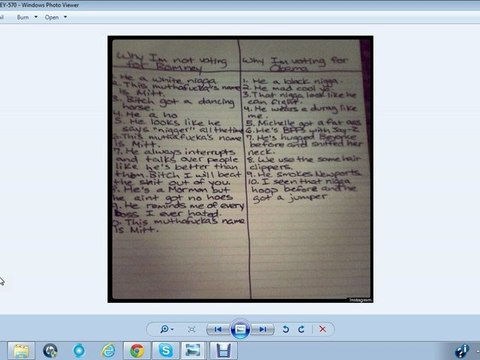 EY-570 - Windows Photo Viewer
Burn Open
Why I'm not voting
for Romney
1. He a white nigga.
2. This muthafucka's name
is Mitt.
3. Bitch got a dancing
horse.
4. He a ho
5. He looks like he
says "nigger" all the time
6. This muthafucka's name
is Mitt.
7. He always interrupts
and talks over people
like he's better than
them. Bitch I will beat
the shit out of you.
8. He's a Mormon but
he aint got no hoes
9. He reminds me of every
boss I ever hated.
This muthafucka's name
is Mitt.
Why I'm voting for
Obama
1. He a black nigga.
2. He mad cool
3. That nigga look like he
can fight.
4. He wears a durag like
me.
5. Michelle got a fat ass
6. He's BFFs with Jay-Z
7. He's hugged Beyonce
before and sniffed her
neck.
8. We use the same hair
clippers.
9. He smokes Newports
10. I seen that nigga
hoop before and he
got a jumper
Instagram